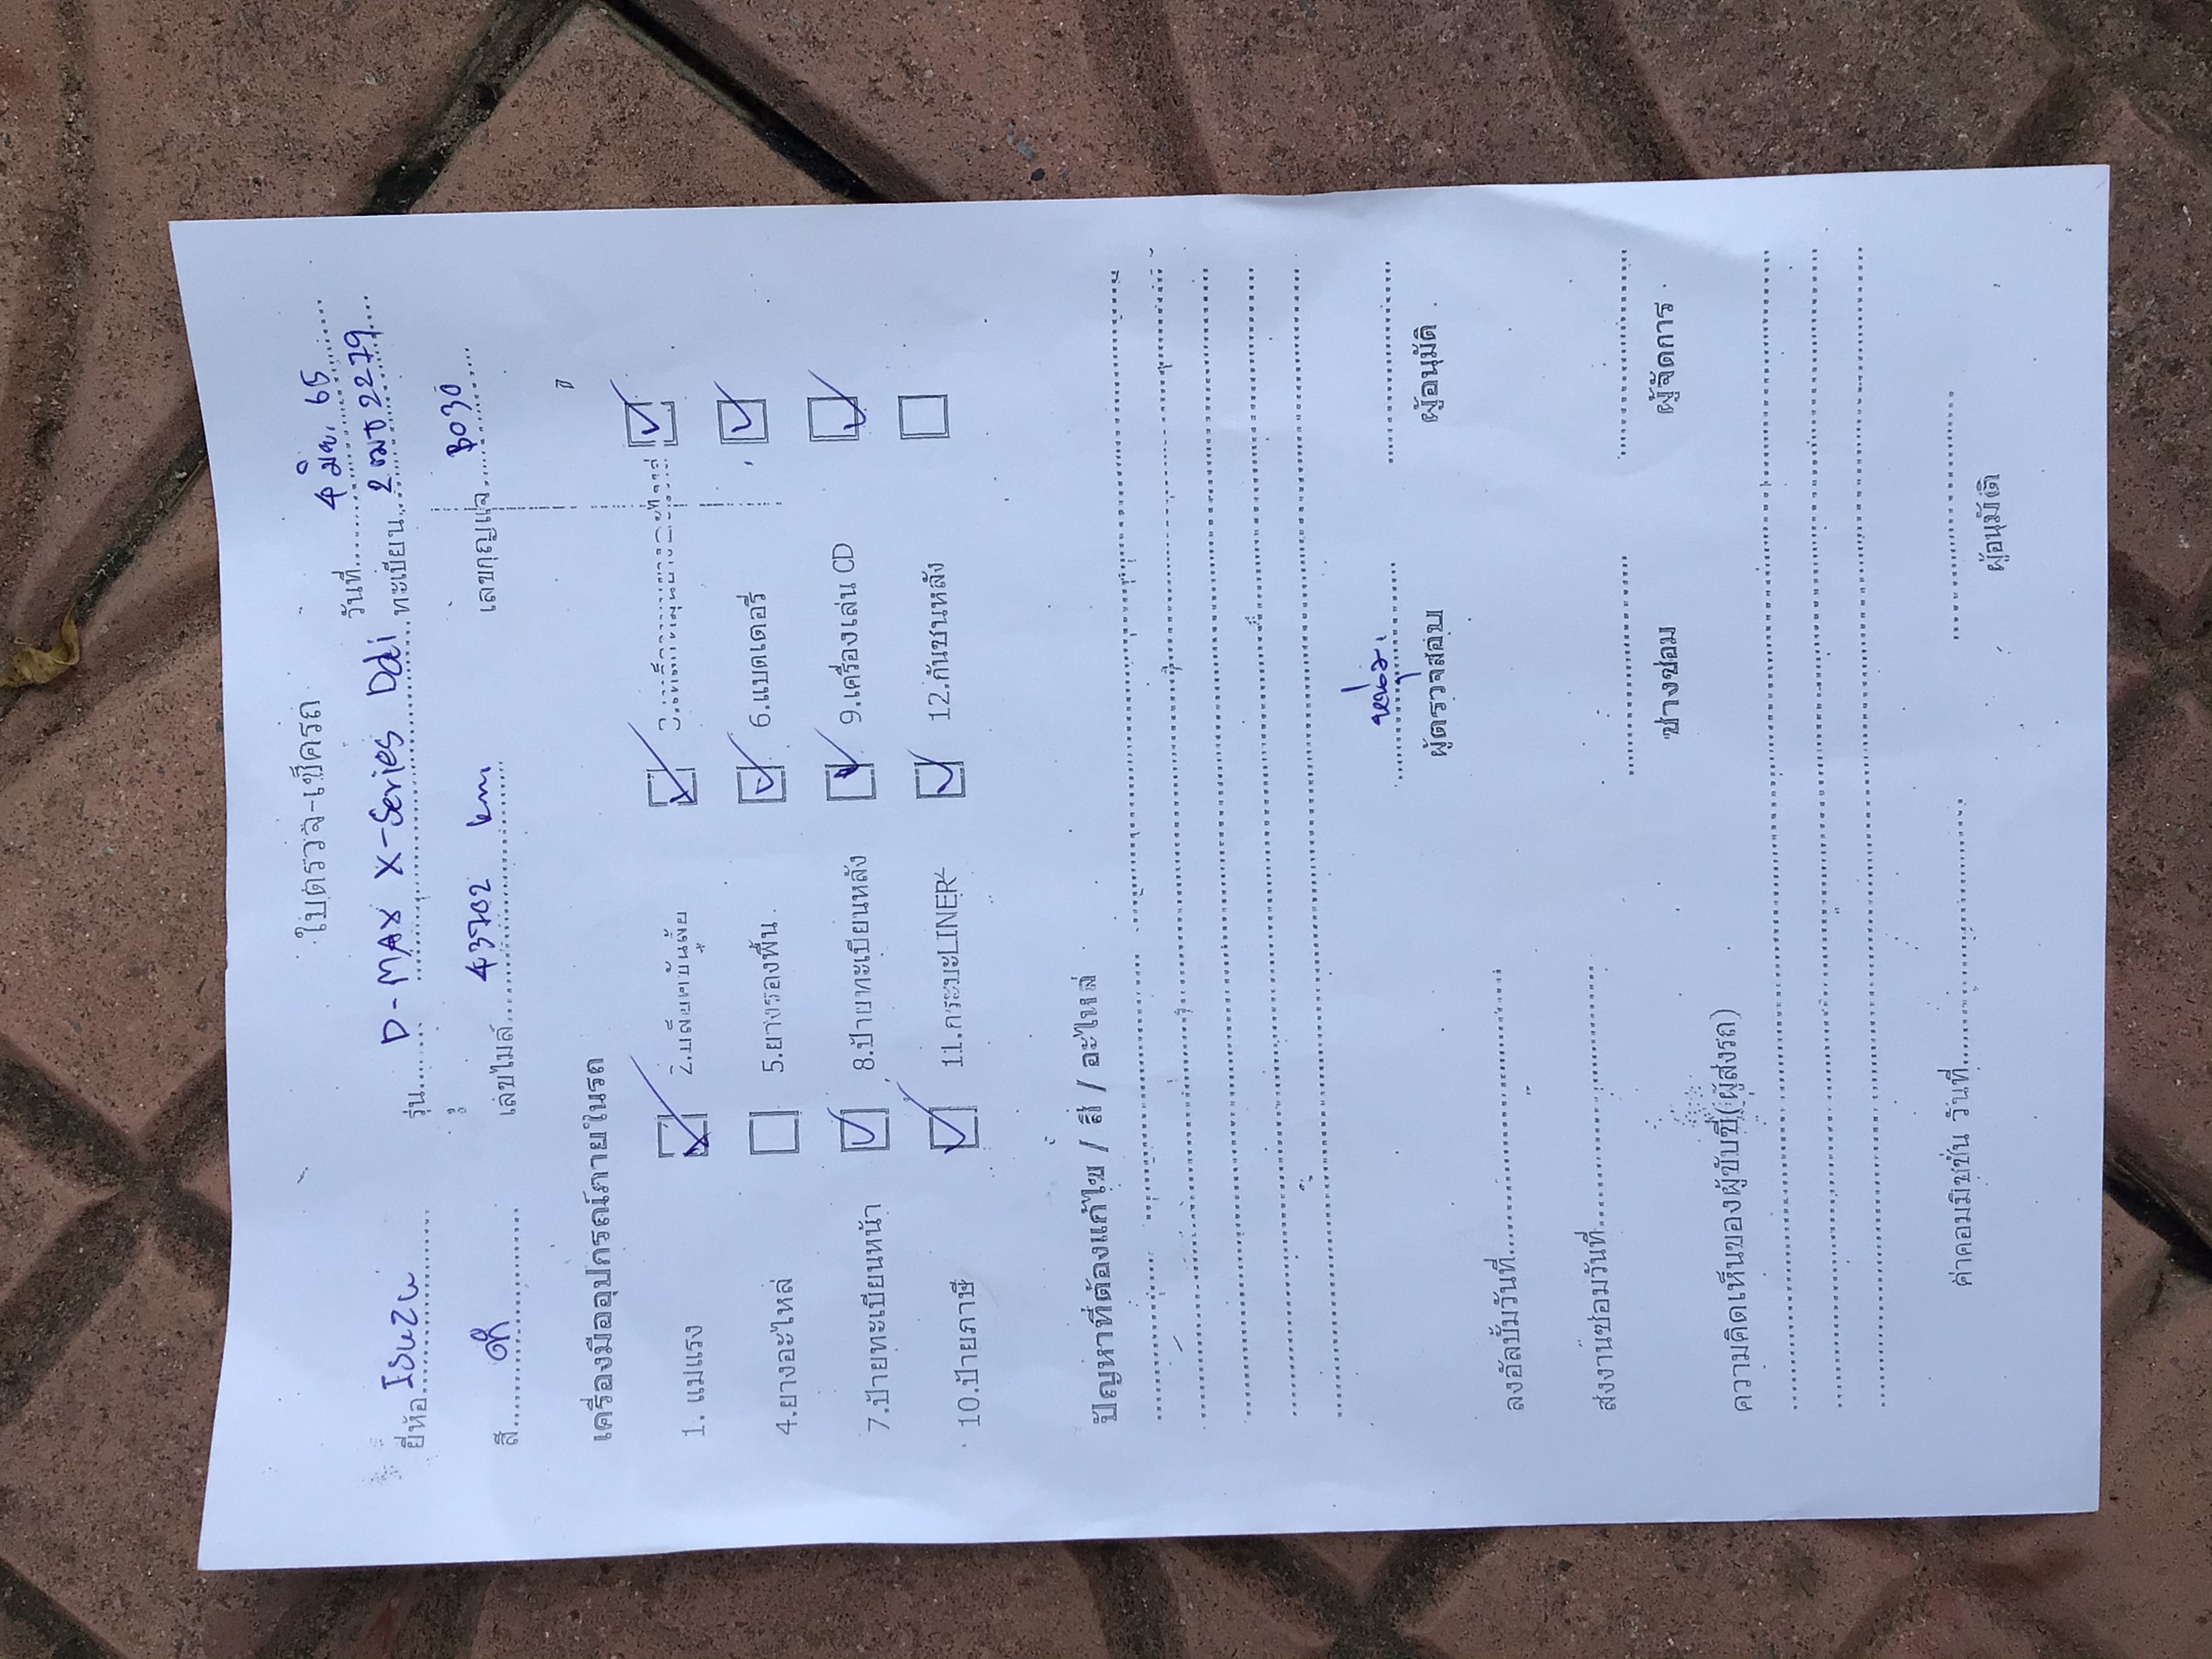 ใบตรวจ-เช็ครถ
วันที่ 4 มิย. 65
ยี่ห้อ Isuzu รุ่น D-MAX X-Series Ddi ทะเบียน 2ฒช 2279
สี ดำ เลขไมล์ 43702 km เลขกุญแจ B030
เครื่องมืออุปกรณ์ภายในรถ
1. แม่แรง 2.บล็อคขันล้อ
4.ยางอะไหล่ 5.ยางรองพื้น 6.แบตเตอรี่
7.ป้ายทะเบียนหน้า 8.ป้ายทะเบียนหลัง 9.เครื่องเล่น CD
10.ป้ายภาษี 11.กระบะLINER 12.กันชนหลัง
ปัญหาที่ต้องแก้ไข / สี / อะไหล่
ผู้ตรวจสอบ ผู้อนุมัติ
ลงอัลบั้มวันที่
ส่งงานซ่อมวันที่
ช่างซ่อม ผู้จัดการ
ความคิดเห็นของผู้ขับขี่(ผู้ส่งรถ)
ค่าคอมมิชชั่น วันที่
ผู้อนุมัติ